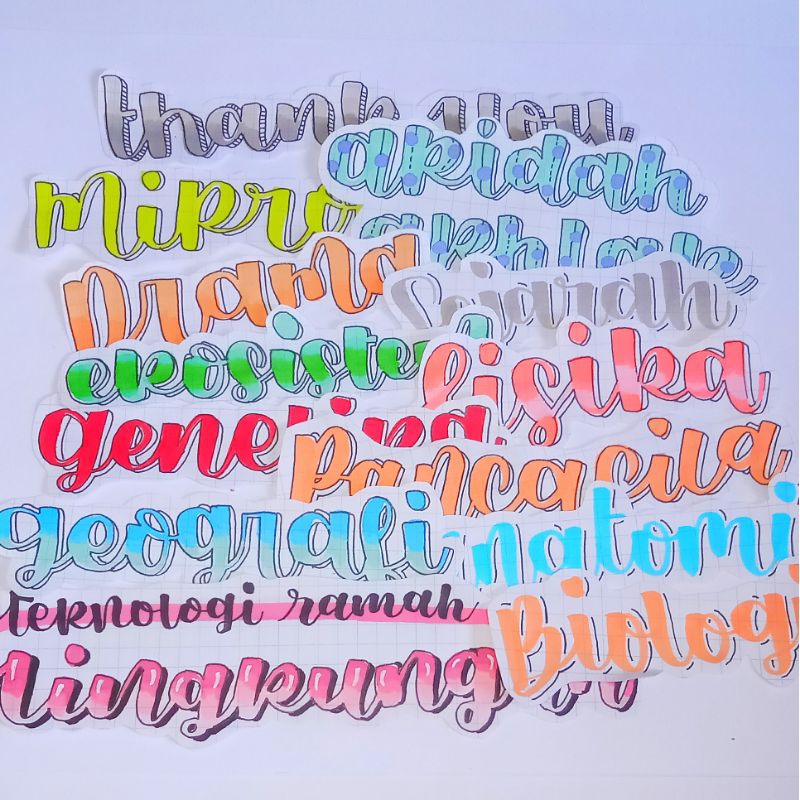 thank you
akidah
akhlak
mikro
Drama
Sejarah
ekosistem
fisika
genetika
Pancasila
geografi
natomi
Biologi
teknologi ramah
lingkungan